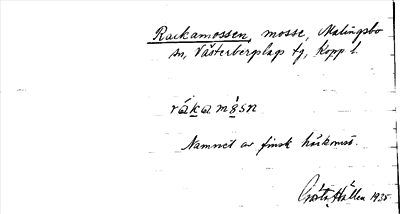 Rackamossen, mosse, Malingsbo
sn, Västerbergslags tj, Kopp l.
råkamåsn
Namnet av finsk härkomst.
Gösta Hállen 1935